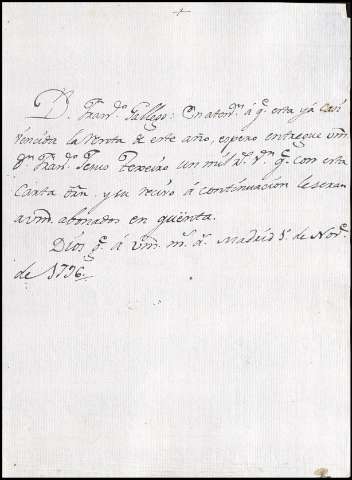 +
D. Fran.co Gallego: En aton. á q.e esta yá casi
vencida la Renta de este año, espero entregue Vm.
D.n Fran.co Perez Texeiro un mil R.s V.n q.e con esta
Carta orn. y su recivo á continuacion le seran
a Vm. abonados en quenta.
Dios g.e á Vm. m.s a.s Madrid 5,, de Nov.e
de 1796,,